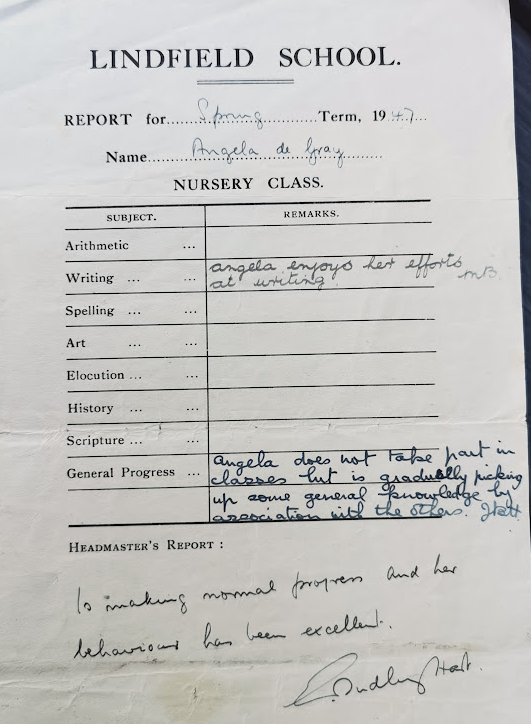 LINDFIELD SCHOOL.
REPORT for......Spring............Term, 19.47...
Name........Angela de Gray........
NURSERY CLASS.
SUBJECT. REMARKS.
Arithmetic ...
Writing ... ... angela enjoys her efforts
at writing. MB.
Spelling ... ...
Art ... ...
Elocution ... ...
History ... ...
Scripture ... ...
General Progress ... angela does not take part in
classes but is gradually picking
up some general knowledge by
association with the others.
HEADMASTER'S REPORT :
Is making normal progress and her
behaviour has been excellent.
Dudley Hart.